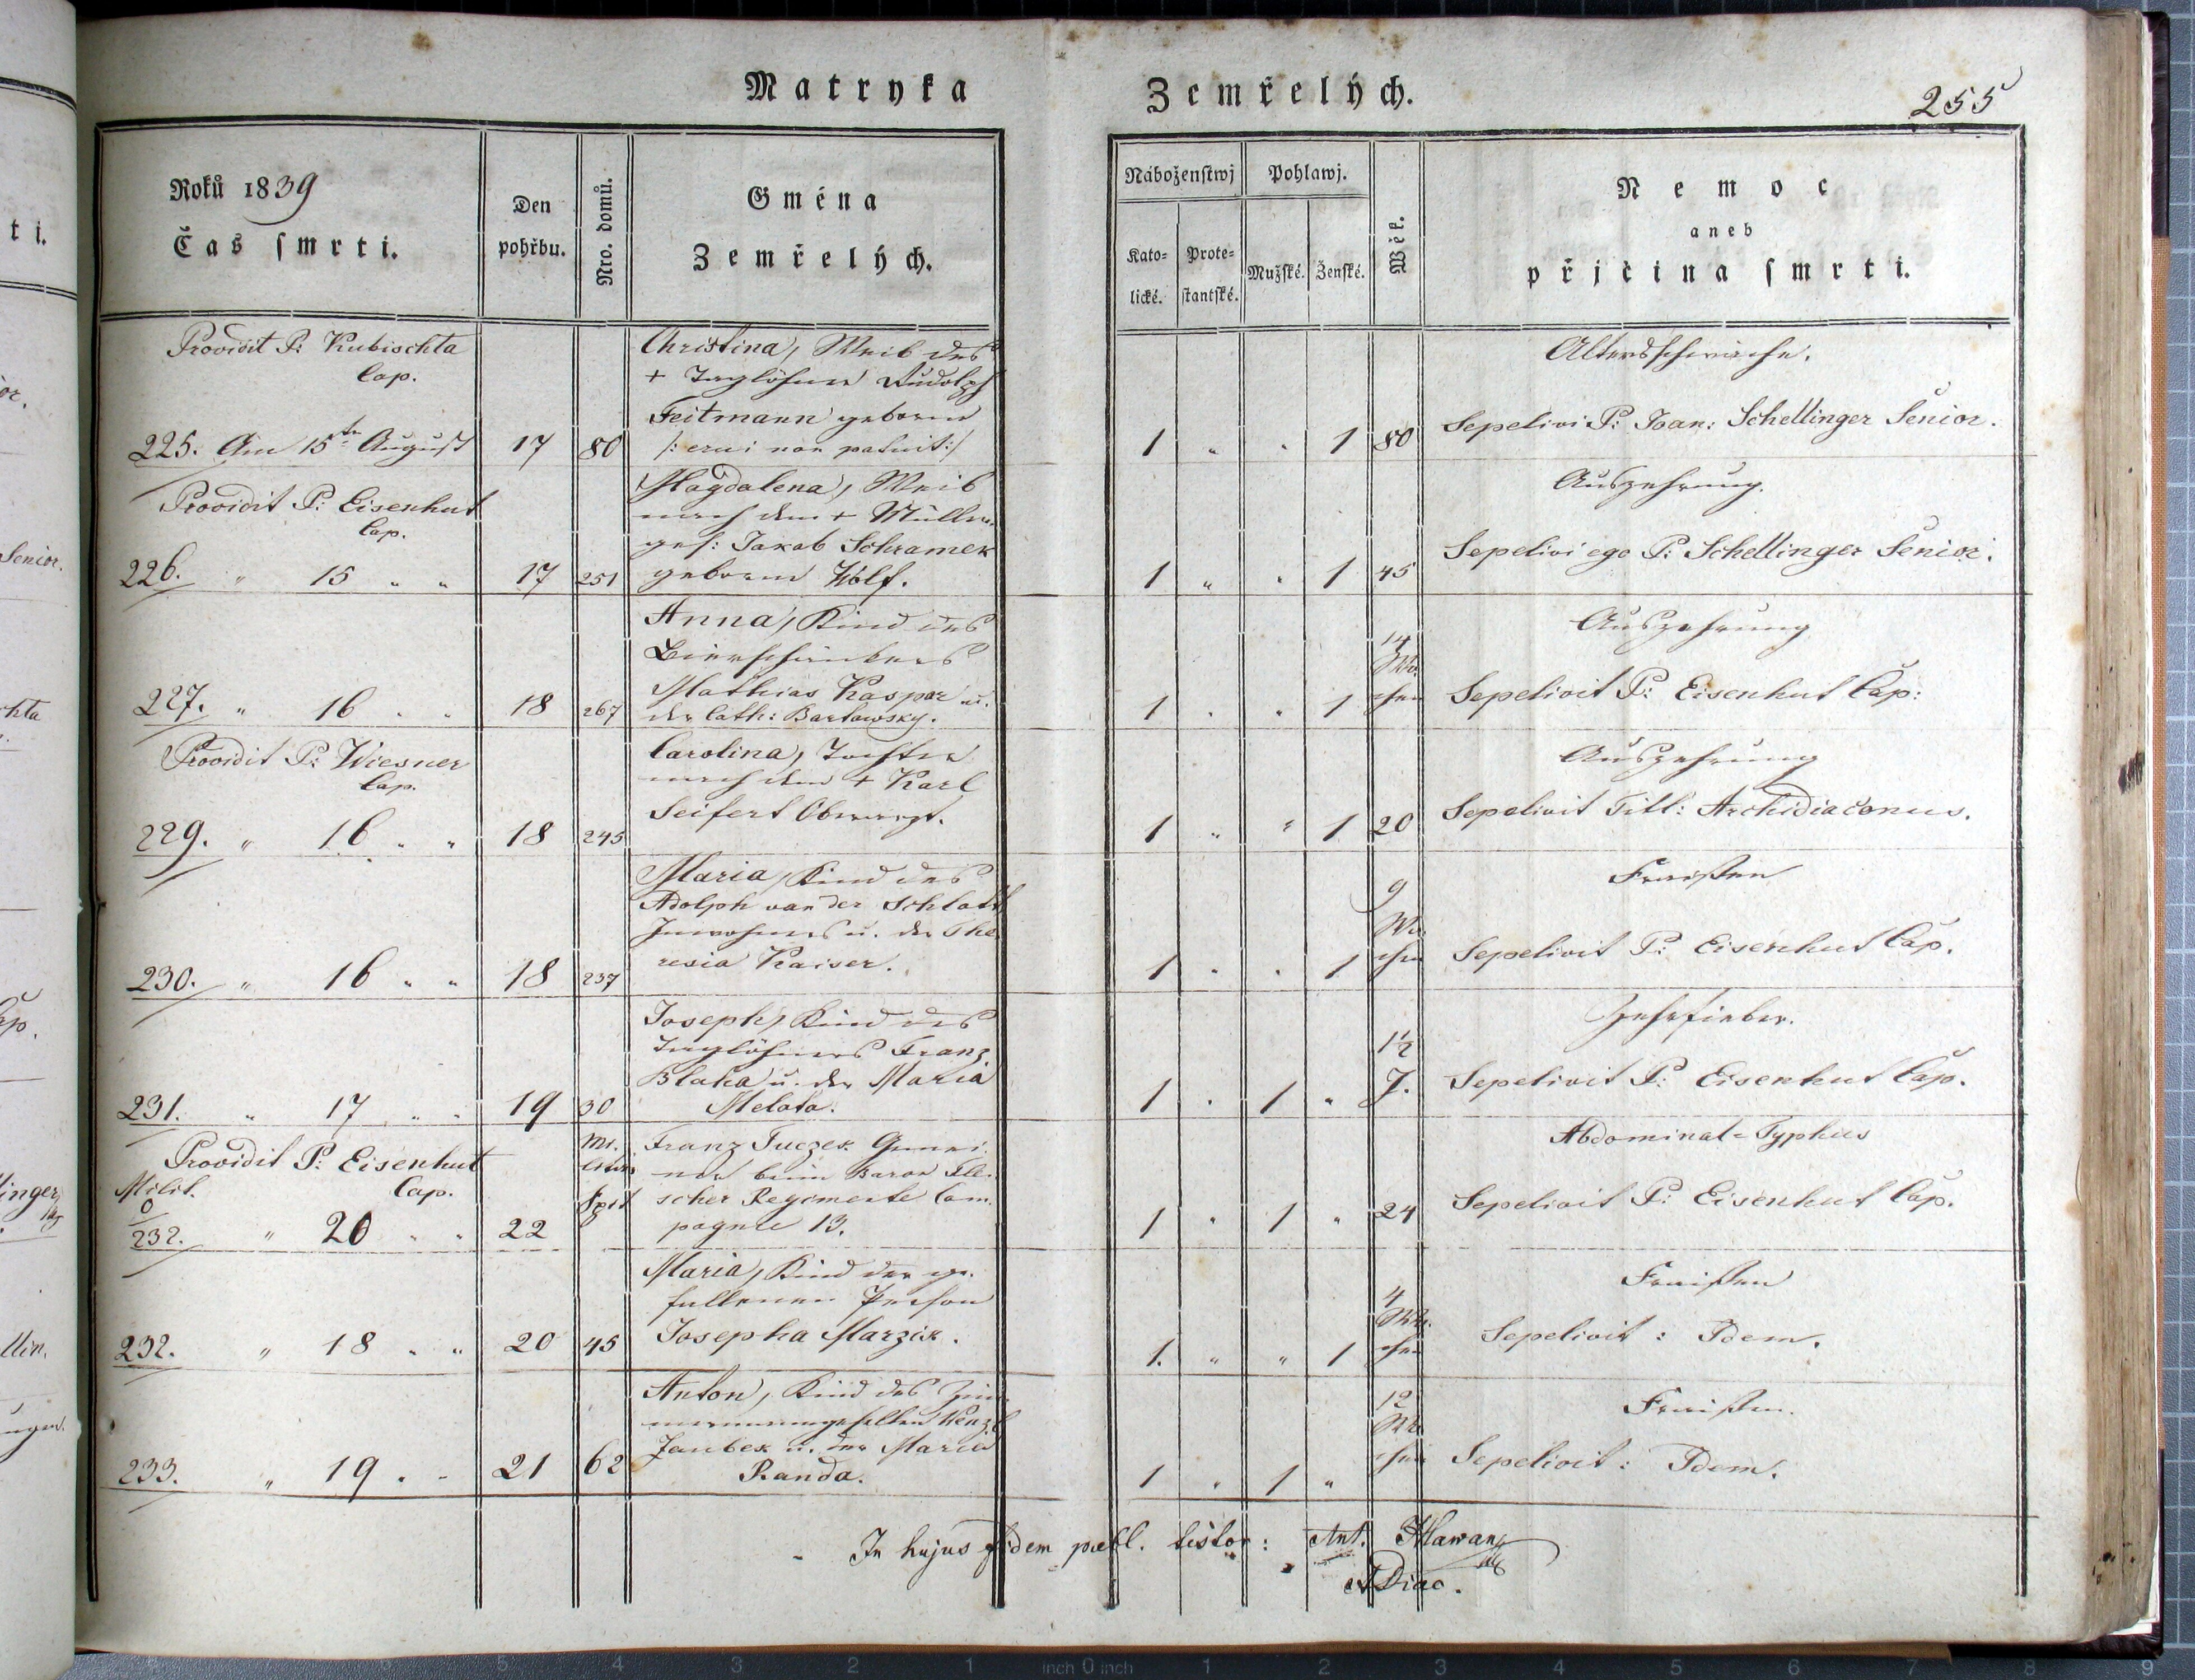 Matryka Zemřelých.
255
Roků 1839
Čas smrti.
Den pohřbu.
Nro. domů.
Gména
Zemřelých.
Náboženstwj
Kato=
lické.
Prote=
stantské.
Pohlawj.
Mužské.
Ženské.
Wěk.
Nemoc
aneb
přjčina smrti.
Providit P: Kubischta
Cap.
225. Am 15te August 17 80
Christina, Weib des
+ Taglöhner Rudolph
Feitmann geborene
/: erui non patuit :/
1 " " 1 80
Altersschwäche.
Sepelivi P: Joan: Schellinger Senior.
Providit P: Eisenhut
Cap.
226. " 15 " " 17 251
Magdalena, Weib
nach dem + Müller
ges: Jakob Schramek
geborene Wolf.
1 " " 1 45
Auszehrung.
Sepelivi ego P: Schellinger Senior.
227. " 16 " " 18 267
Anna, Kind des
Bierschänkers
Mathias Kaspar u.
der Cath: Bartowsky.
1 " " 1 14 Wo
chen
Auszehrung
Sepelivit P: Eisenhut Cap:
Providit P: Wiesner
Cap.
229. " 16 " " 18 245
Carolina, Tochter
nach dem + Karl
Seifert
1 " " 1 20
Auszehrung
Sepelivit Titl: Archidiaconus.
230. " 16 " " 18 237
Maria, Kind des
Adolph van der Schlott
Inwohners u. der The
resia Kaiser.
1 " " 1 9 Wo
chen
Fraißen
Sepelivit P: Eisenhut Cap.
231. " 17 " " 19 30
Joseph, Kind des
Taglöhners Franz
Blaha u. der Maria
Melata.
1 " 1 " 1½ J.
Zehrfieber.
Sepelivit P: Eisenhut Cap.
Providit P: Eisenhut
Milit. Cap.
0/232. " 20 " " 22
Franz Tuczek Gemei
ner beim Baron Flei
scher Regimente Com
pagnie 13.
1 " 1 " 24
Abdominal-Typhus
Sepelivit P: Eisenhut Cap.
232. " 18 " " 20 45
Maria, Kind der ge
fallenen Person
Josepha Marzik.
1. " " 1 4 Wo
chen
Fraißen
Sepelivit: Idem.
233. " 19 " " 21 62
Anton, Kind des Zim
mermanngesellen Wenzl
Janbek u. der Maria
Randa.
1 " 1 " 12 Wo
chen
Fraißen.
Sepelivit: Idem.
In hujus fidem testor: Ant. Hlawan
ADiac.